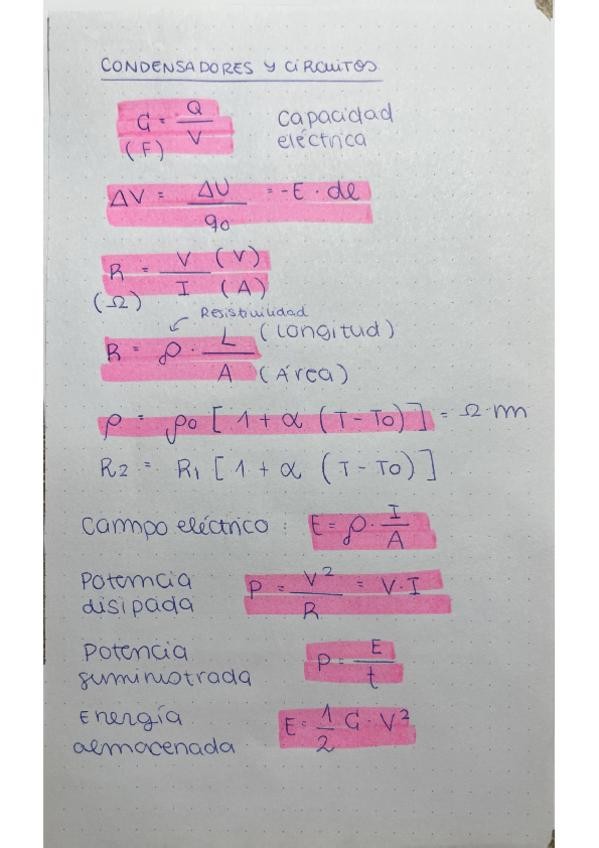 CONDENSADORES Y CIRCUITOS
C = Q / V   Capacidad
(F)   eléctrica
ΔV = ΔU / q0 = -E · dl
R = V (V) / I (A)
(Ω)
Resistividad
R = ρ · L (Longitud) / A (Área)
ρ = ρ0 [ 1 + α (T - T0) ] = Ω·m
R2 = R1 [ 1 + α (T - T0) ]
Campo eléctrico : E = ρ · I / A
Potencia
disipada   P = V² / R = V·I
Potencia
suministrada   P = E / t
Energía
almacenada   E = 1/2 C · V²